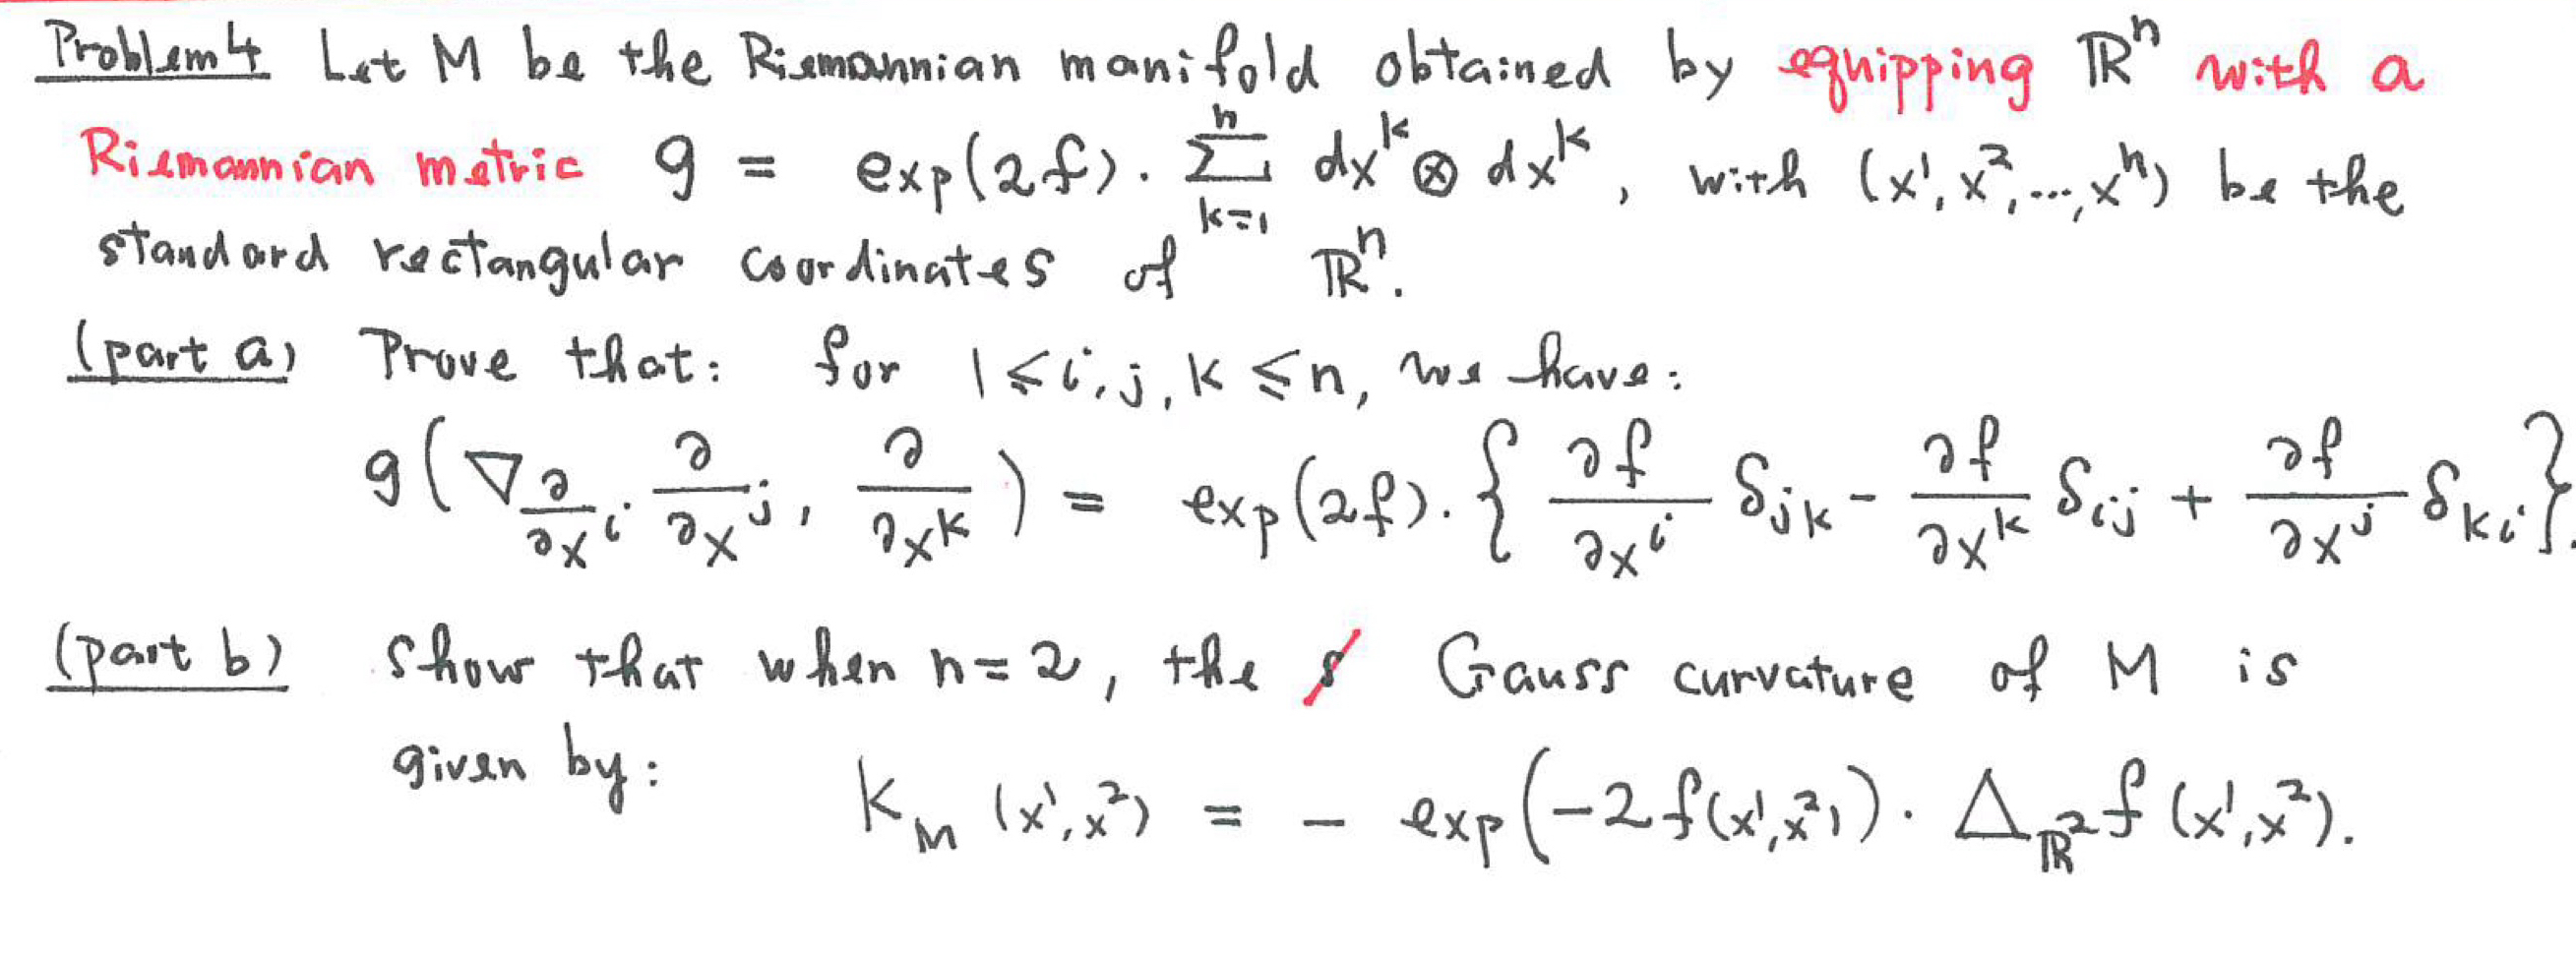 Problem 4 Let M be the Riemannian manifold obtained by equipping ℝⁿ with a
Riemannian metric g = exp(2f). ∑_{k=1}^{n} dx^k ⊗ dx^k, with (x¹, x², ..., xⁿ) be the
standard rectangular coordinates of ℝⁿ.
(part a) Prove that: for 1 ≤ i, j, k ≤ n, we have:
g(∇_{∂/∂x^i} ∂/∂x^j, ∂/∂x^k) = exp(2f). { ∂f/∂x^i δ_{jk} - ∂f/∂x^k δ_{ij} + ∂f/∂x^j δ_{ki} }.
(part b) Show that when n = 2, the Gauss curvature of M is
given by: K_M (x¹, x²) = - exp(-2f(x¹, x²)). Δ_{ℝ²} f (x¹, x²).